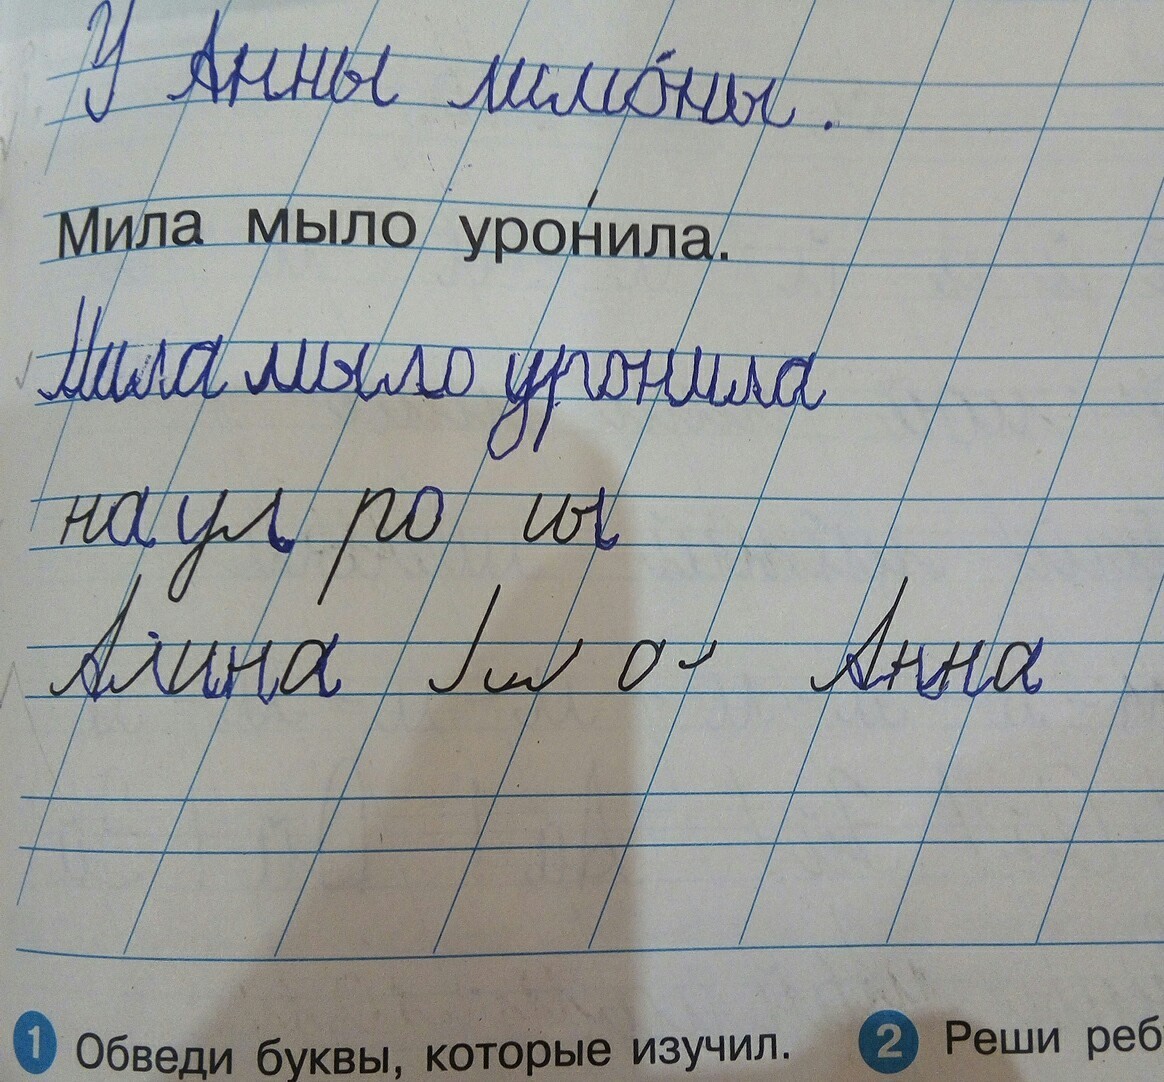 У Анны лимоны.
Мила мыло уронила.
Мила мыло уронила
на ул ро ы
Алина о Анна
1 Обведи буквы, которые изучил. 2 Реши реб